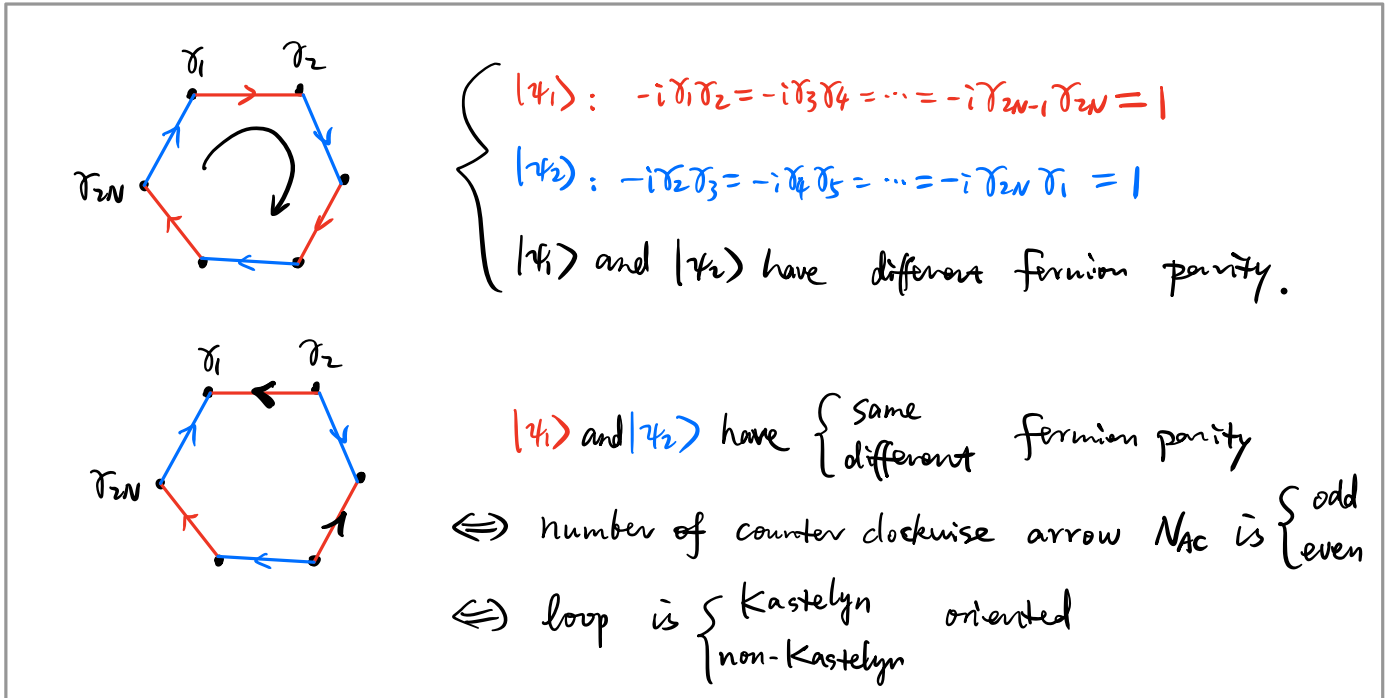 γ₁ γ₂
γ₂N
|ψ₁⟩ : -iγ₁γ₂ = -iγ₃γ₄ = ⋯ = -iγ₂N₋₁γ₂N = 1
|ψ₂⟩ : -iγ₂γ₃ = -iγ₄γ₅ = ⋯ = -iγ₂Nγ₁ = 1
|ψ₁⟩ and |ψ₂⟩ have different fermion parity.
γ₁ γ₂
γ₂N
|ψ₁⟩ and |ψ₂⟩ have { same
different fermion parity
⟺ number of counter clockwise arrow N_AC is { odd
even
⟺ loop is { Kastelyn
non-Kastelyn oriented